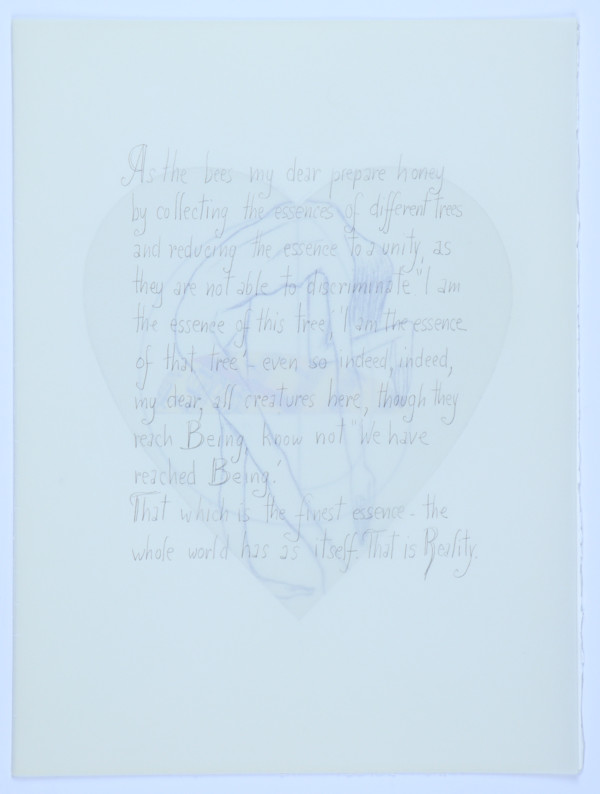 As the bees my dear prepare honey
by collecting the essences of different trees
and reducing the essence to a unity, as
they are not able to discriminate "I am
the essence of this tree, 'I am the essence
of that tree' - even so indeed, indeed,
my dear, all creatures here, though they
reach Being know not "We have
reached Being.'
That which is the finest essence - the
whole world has as itself. That is Reality.